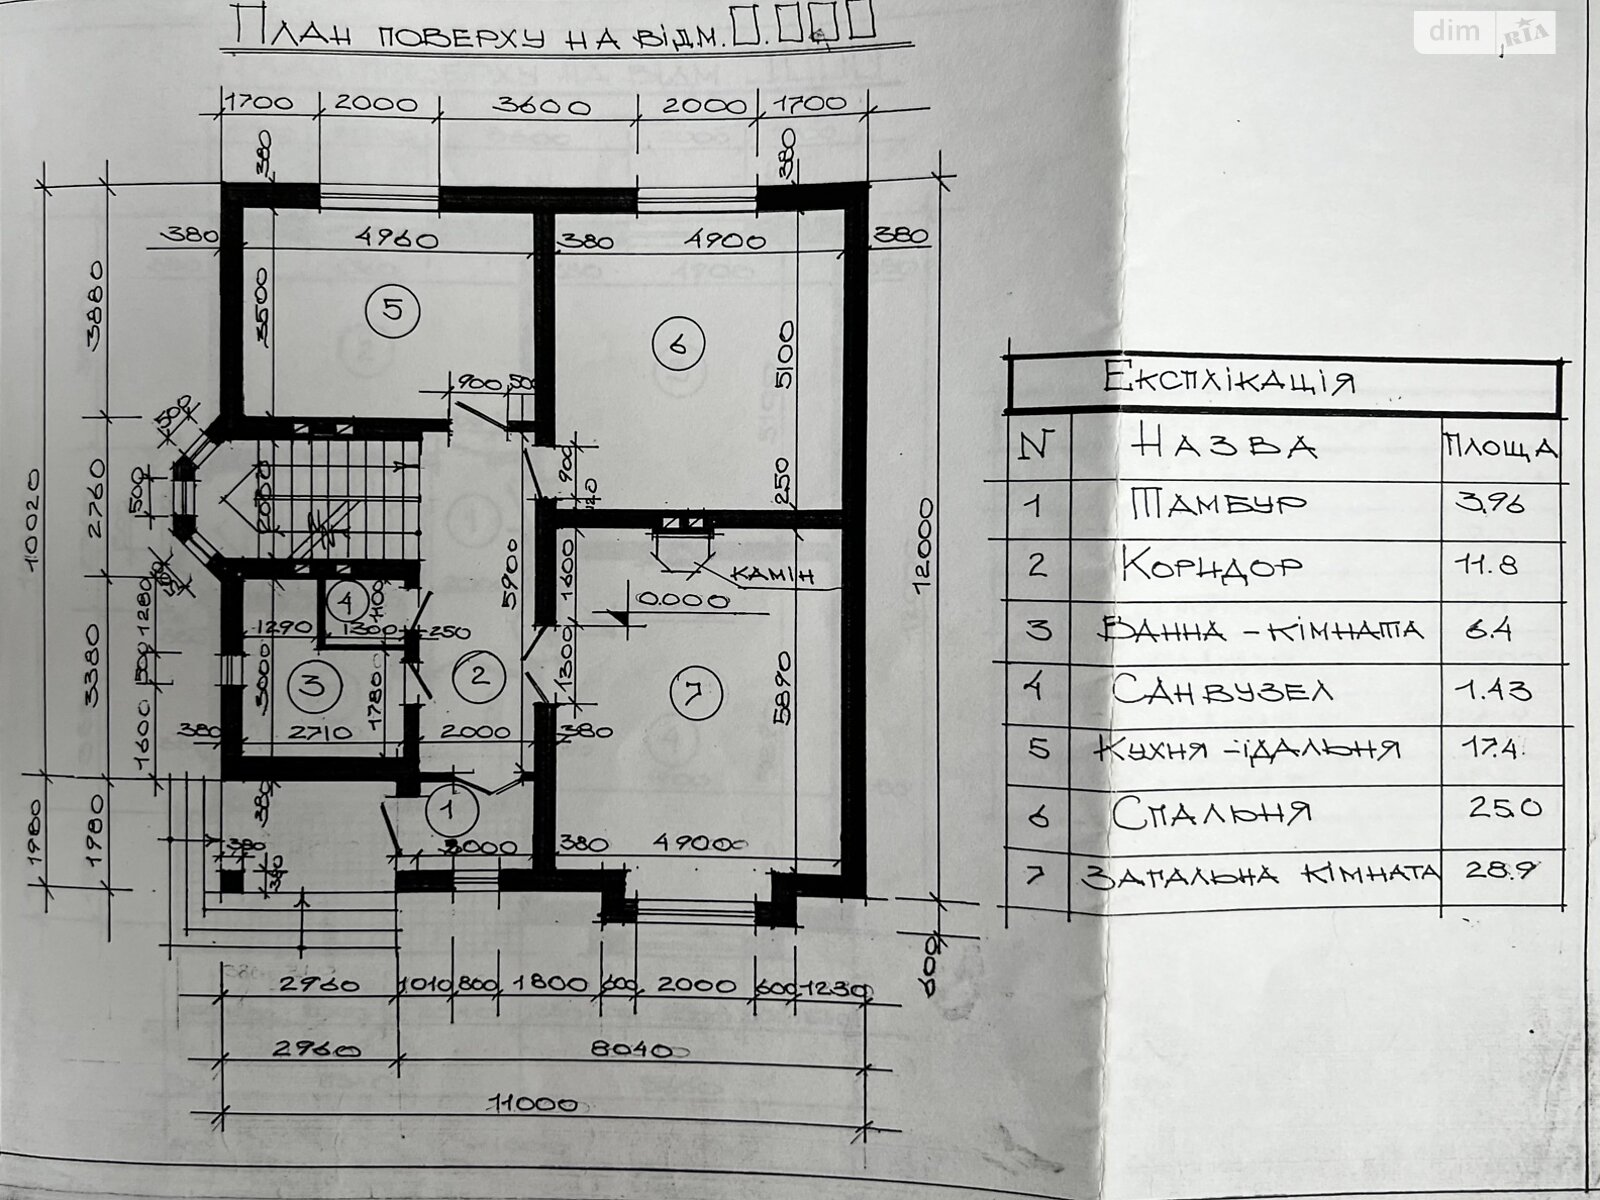 План поверху на відм. 0.000
dim RIA
1700 2000 3600 2000 1700
380 380
380 4960 380 4900 380
3880 3500 5 6 5100
900 500
500
11020 2760 500 2060 900 120 250 12000
5900 1600 камін
1280 4 1100 0.000
1290 1300 250
3380 500 3000 3 1780 2 1300 7 5890
1600 380 2710 2000 380
1980 1980 380 1
380 380 3000 380 4900
600
2960 1010 800 1800 600 2000 600 1230
2960 8040
11000
Експлікація
N Назва площа
1 Тамбур 3.96
2 Коридор 11.8
3 Ванна-кімната 6.4
4 Санвузел 1.43
5 Кухня-їдальня 17.4
6 Спальня 25.0
7 Загальна кімната 28.9